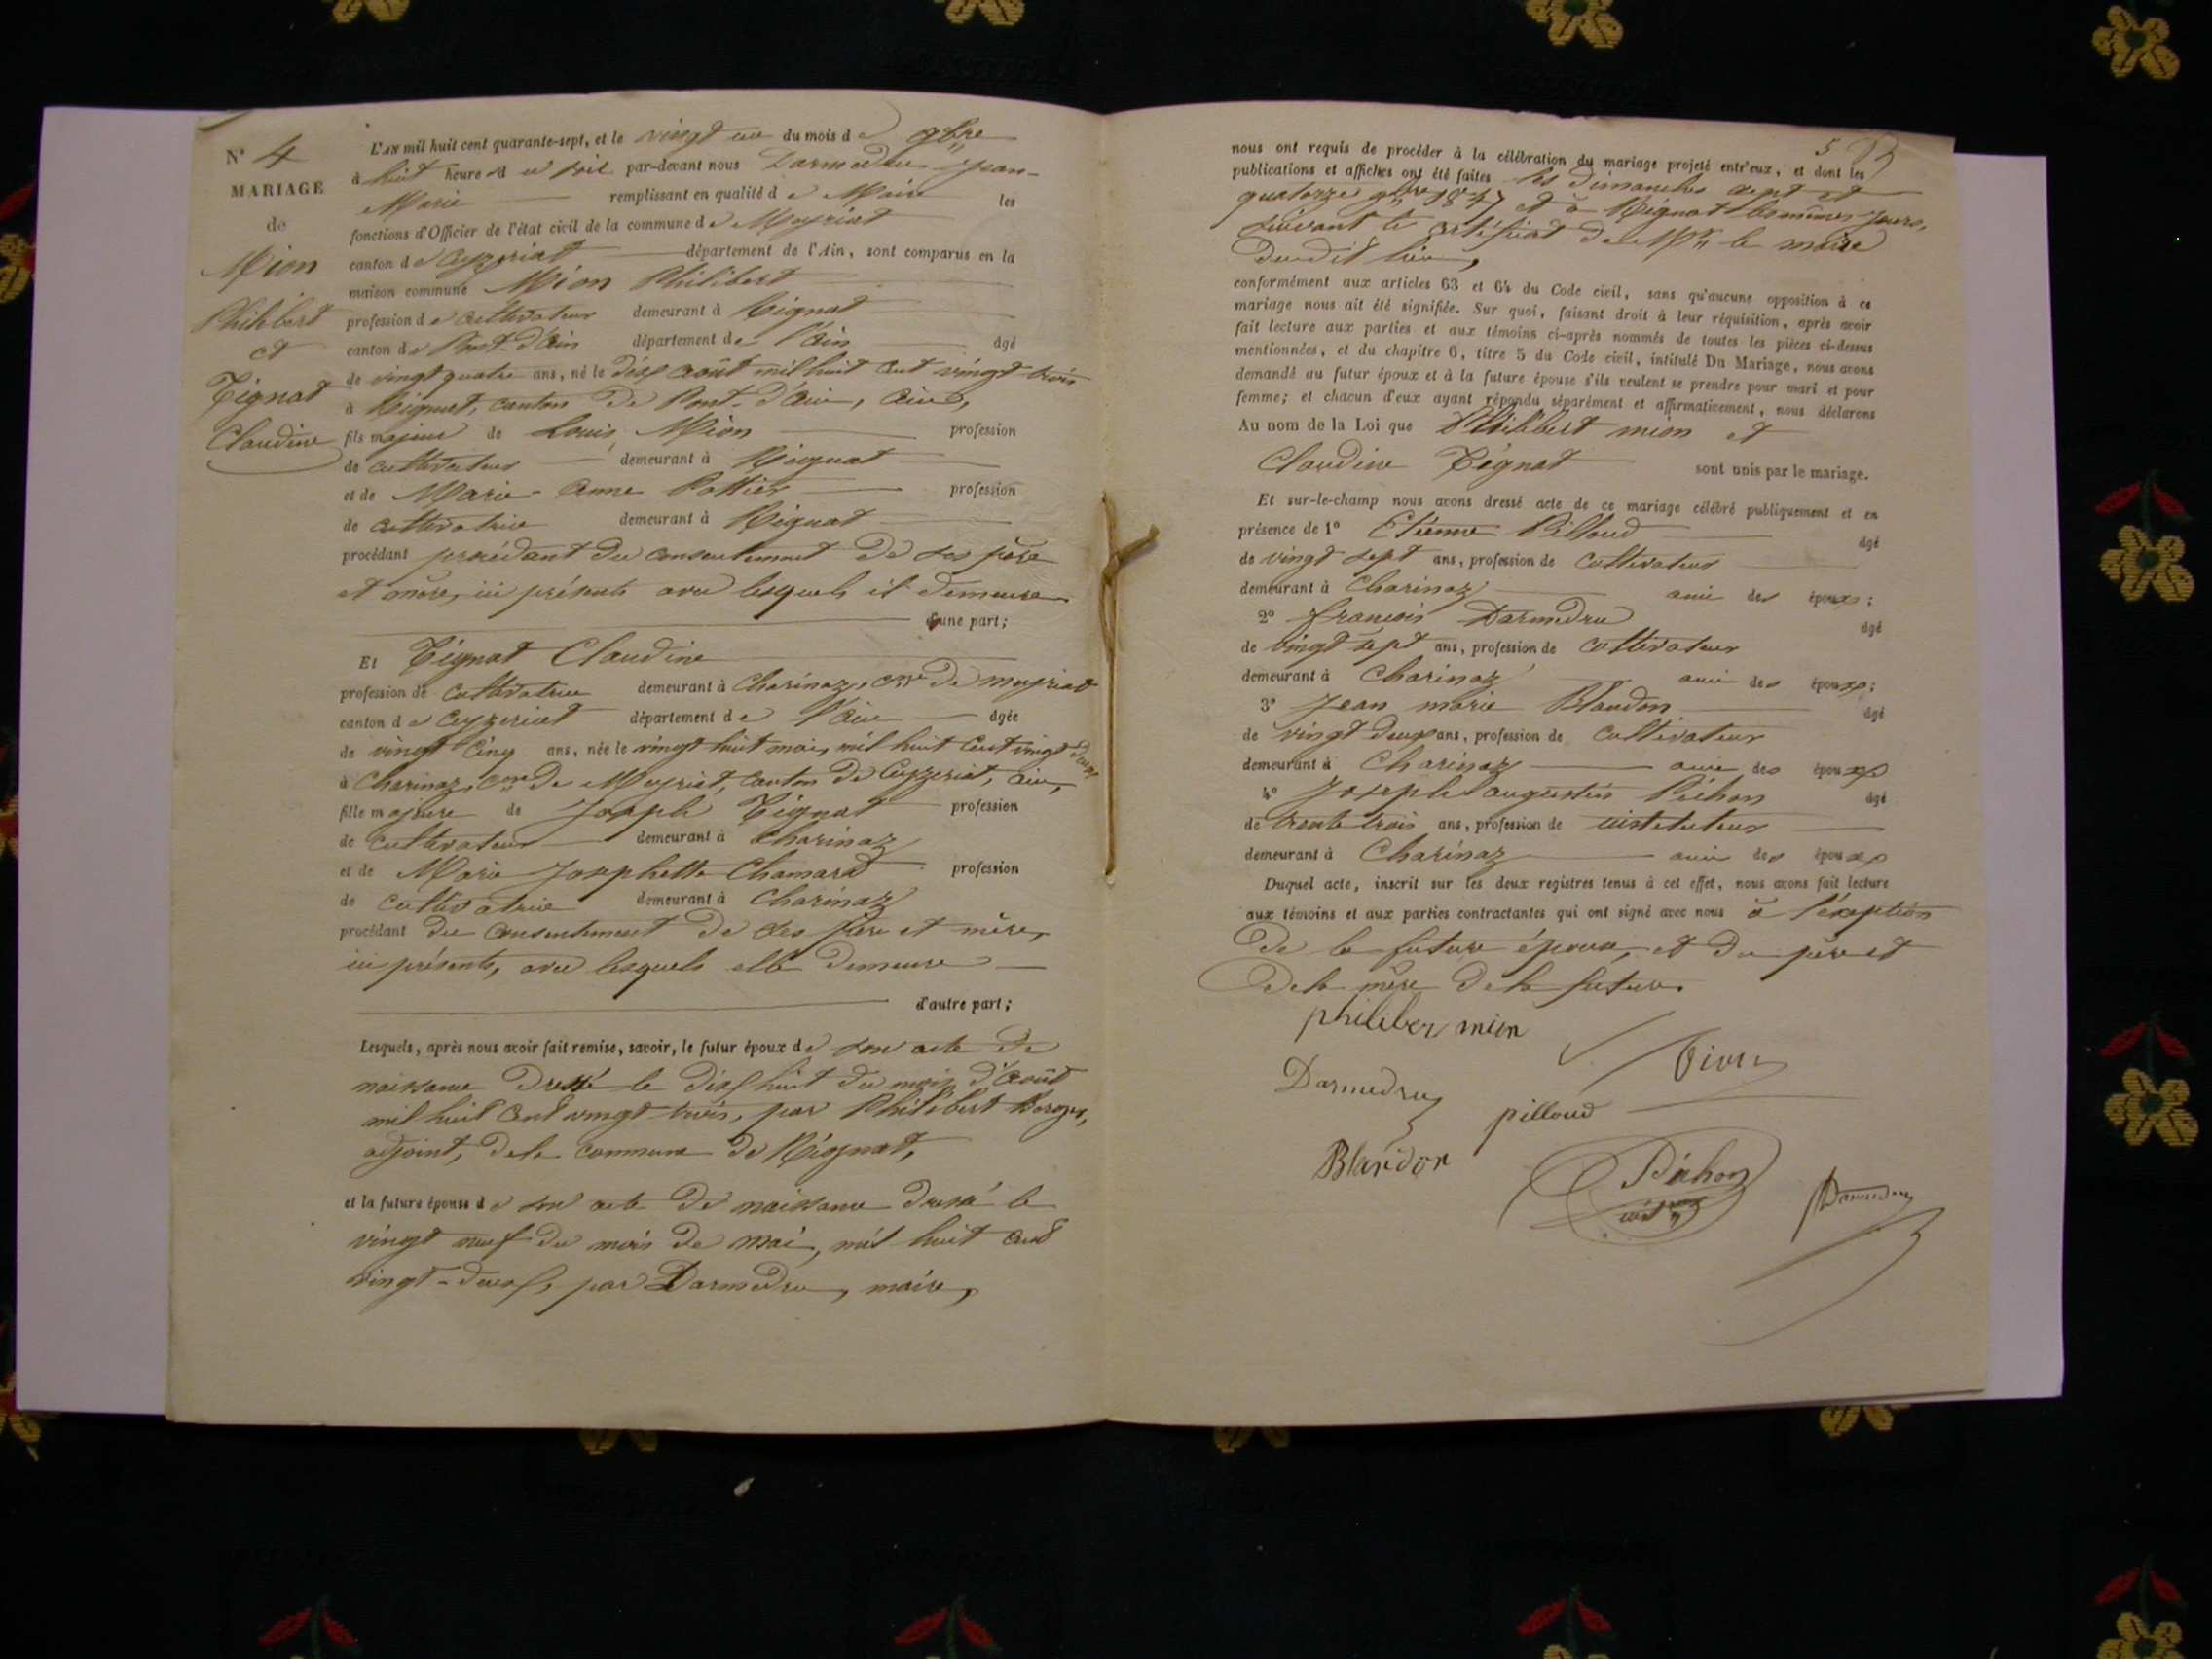 N° 4
MARIAGE
de
Mion
Philibert
et
Tignat
Claudine
L'AN mil huit cent quarante-sept, et le vingt un du mois de 9bre
à huit heures du soir par-devant nous Darmedru jean-
Marie remplissant en qualité de Maire les
fonctions d'Officier de l'état civil de la commune de Meyriat
canton de Ceyzeriat département de l'Ain, sont comparus en la
maison commune Mion Philibert
profession de cultivateur demeurant à Rignat
canton de Pont-d'Ain département de l'Ain âgé
de vingt quatre ans, né le dix août mil huit cent vingt trois
à Rignat, canton de Pont d'Ain, Ain,
fils majeur de Louis Mion profession
de cultivateur demeurant à Rignat
et de Marie-Anne Pottier profession
de cultivatrice demeurant à Rignat
procédant procédant du consentement de ses père
et mère, ici présents avec lesquels il demeure
d'une part;
Et Tignat Claudine
profession de cultivatrice demeurant à Charinaz, cne de meyriat
canton de Ceyzeriat département de l'Ain âgée
de vingt cinq ans, née le vingt huit mai, mil huit cent vingt deux
à Charinaz, cne de Meyriat, canton de Ceyzeriat, Ain,
fille majeure de Joseph Tignat profession
de cultivateur demeurant à Charinaz
et de Marie Josephette Chamard profession
de cultivatrice demeurant à Charinaz
procédant du consentement de ses père et mère,
ici présents, avec lesquels elle demeure
d'autre part;
Lesquels, après nous avoir fait remise, savoir, le futur époux de son acte de
naissance dressé le dix huit du mois d'Août
mil huit cent vingt trois, par Philibert
adjoint, de la commune de Rignat,
et la future épouse de son acte de naissance dressé le
vingt neuf du mois de mai, mil huit cent
vingt-deux, par Darmedru, maire,
5
nous ont requis de procéder à la célébration du mariage projeté entr'eux, et dont les
publications et affiches ont été faites les dimanches sept et
quatorze 9bre 1847 et à Rignat les mêmes jours,
suivant le certificat de Mr le maire
dudit lieu,
conformément aux articles 63 et 64 du Code civil, sans qu'aucune opposition à ce
mariage nous ait été signifiée. Sur quoi, faisant droit à leur réquisition, après avoir
fait lecture aux parties et aux témoins ci-après nommés de toutes les pièces ci-dessus
mentionnées, et du chapitre 6, titre 5 du Code civil, intitulé Du Mariage, nous avons
demandé au futur époux et à la future épouse s'ils veulent se prendre pour mari et pour
femme; et chacun d'eux ayant répondu séparément et affirmativement, nous déclarons
Au nom de la Loi que Philibert mion et
Claudine Tignat sont unis par le mariage.
Et sur-le-champ nous avons dressé acte de ce mariage célébré publiquement et en
présence de 1° Etienne Pilloud âgé
de vingt sept ans, profession de cultivateur
demeurant à Charinaz ami des époux;
2° françois Darmedru âgé
de vingt sept ans, profession de cultivateur
demeurant à Charinaz ami des époux;
3° Jean marie Blandon âgé
de vingt deux ans, profession de cultivateur
demeurant à Charinaz ami des époux
4° Joseph augustin Péchon âgé
de trente trois ans, profession de instituteur
demeurant à Charinaz ami des époux
Duquel acte, inscrit sur les deux registres tenus à cet effet, nous avons fait lecture
aux témoins et aux parties contractantes qui ont signé avec nous à l'exception
de la future épouse, et du père et
de la mère de la future.
philiber mion
Darmedru pilloud
Blandon Péchon Darmedru